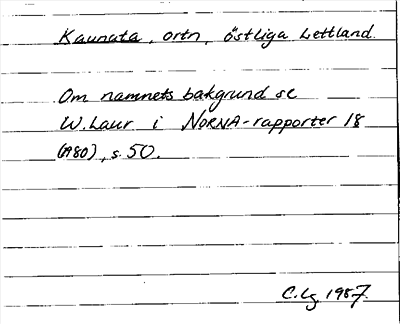 Kaunata, ortn, östliga Lettland.
Om namnets bakgrund se
W. Laur i NORNA-rapporter 18
(1980), s. 50.
C. Lg 1987.